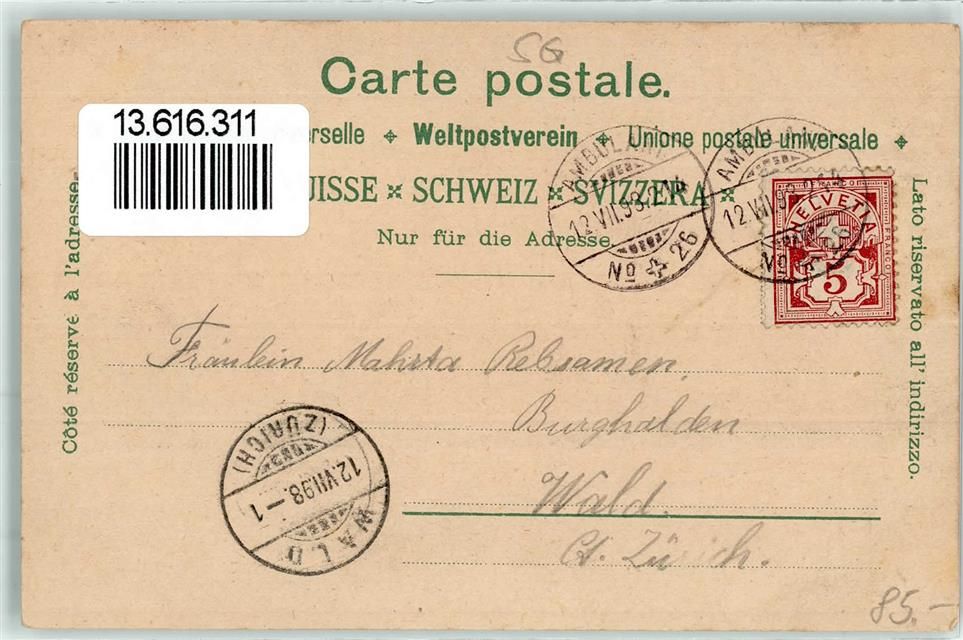 SG
Carte postale.
13.616.311
erselle Weltpostverein Unione postale universale
UISSE SCHWEIZ SVIZZERA
Nur für die Adresse.
Côté réservé à l'adresse.
Lato riservato all' indirizzo.
AMBULANT
12.VII.98
No 26
AMBULANT
12.VII.98
No
FRANCO
HELVETIA
5
Fräulein Mahrta Rebsamen,
Burghalden
Wald.
Ct. Zürich.
WALD
12.VII.98.-1
(ZÜRICH)
85.-